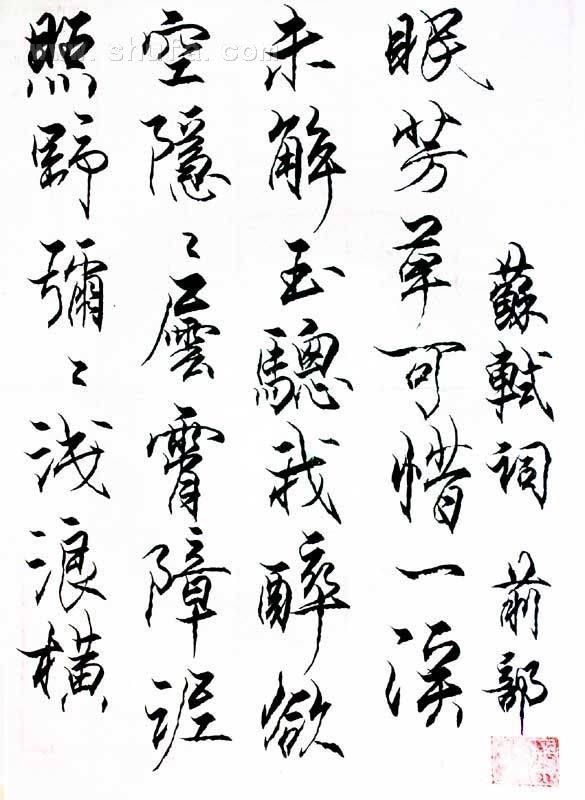 照野彌〻浅浪横
空隱〻層霄障泥
未解玉驄我醉欲
眠芳草可惜一溪
蘇軾詞 前部